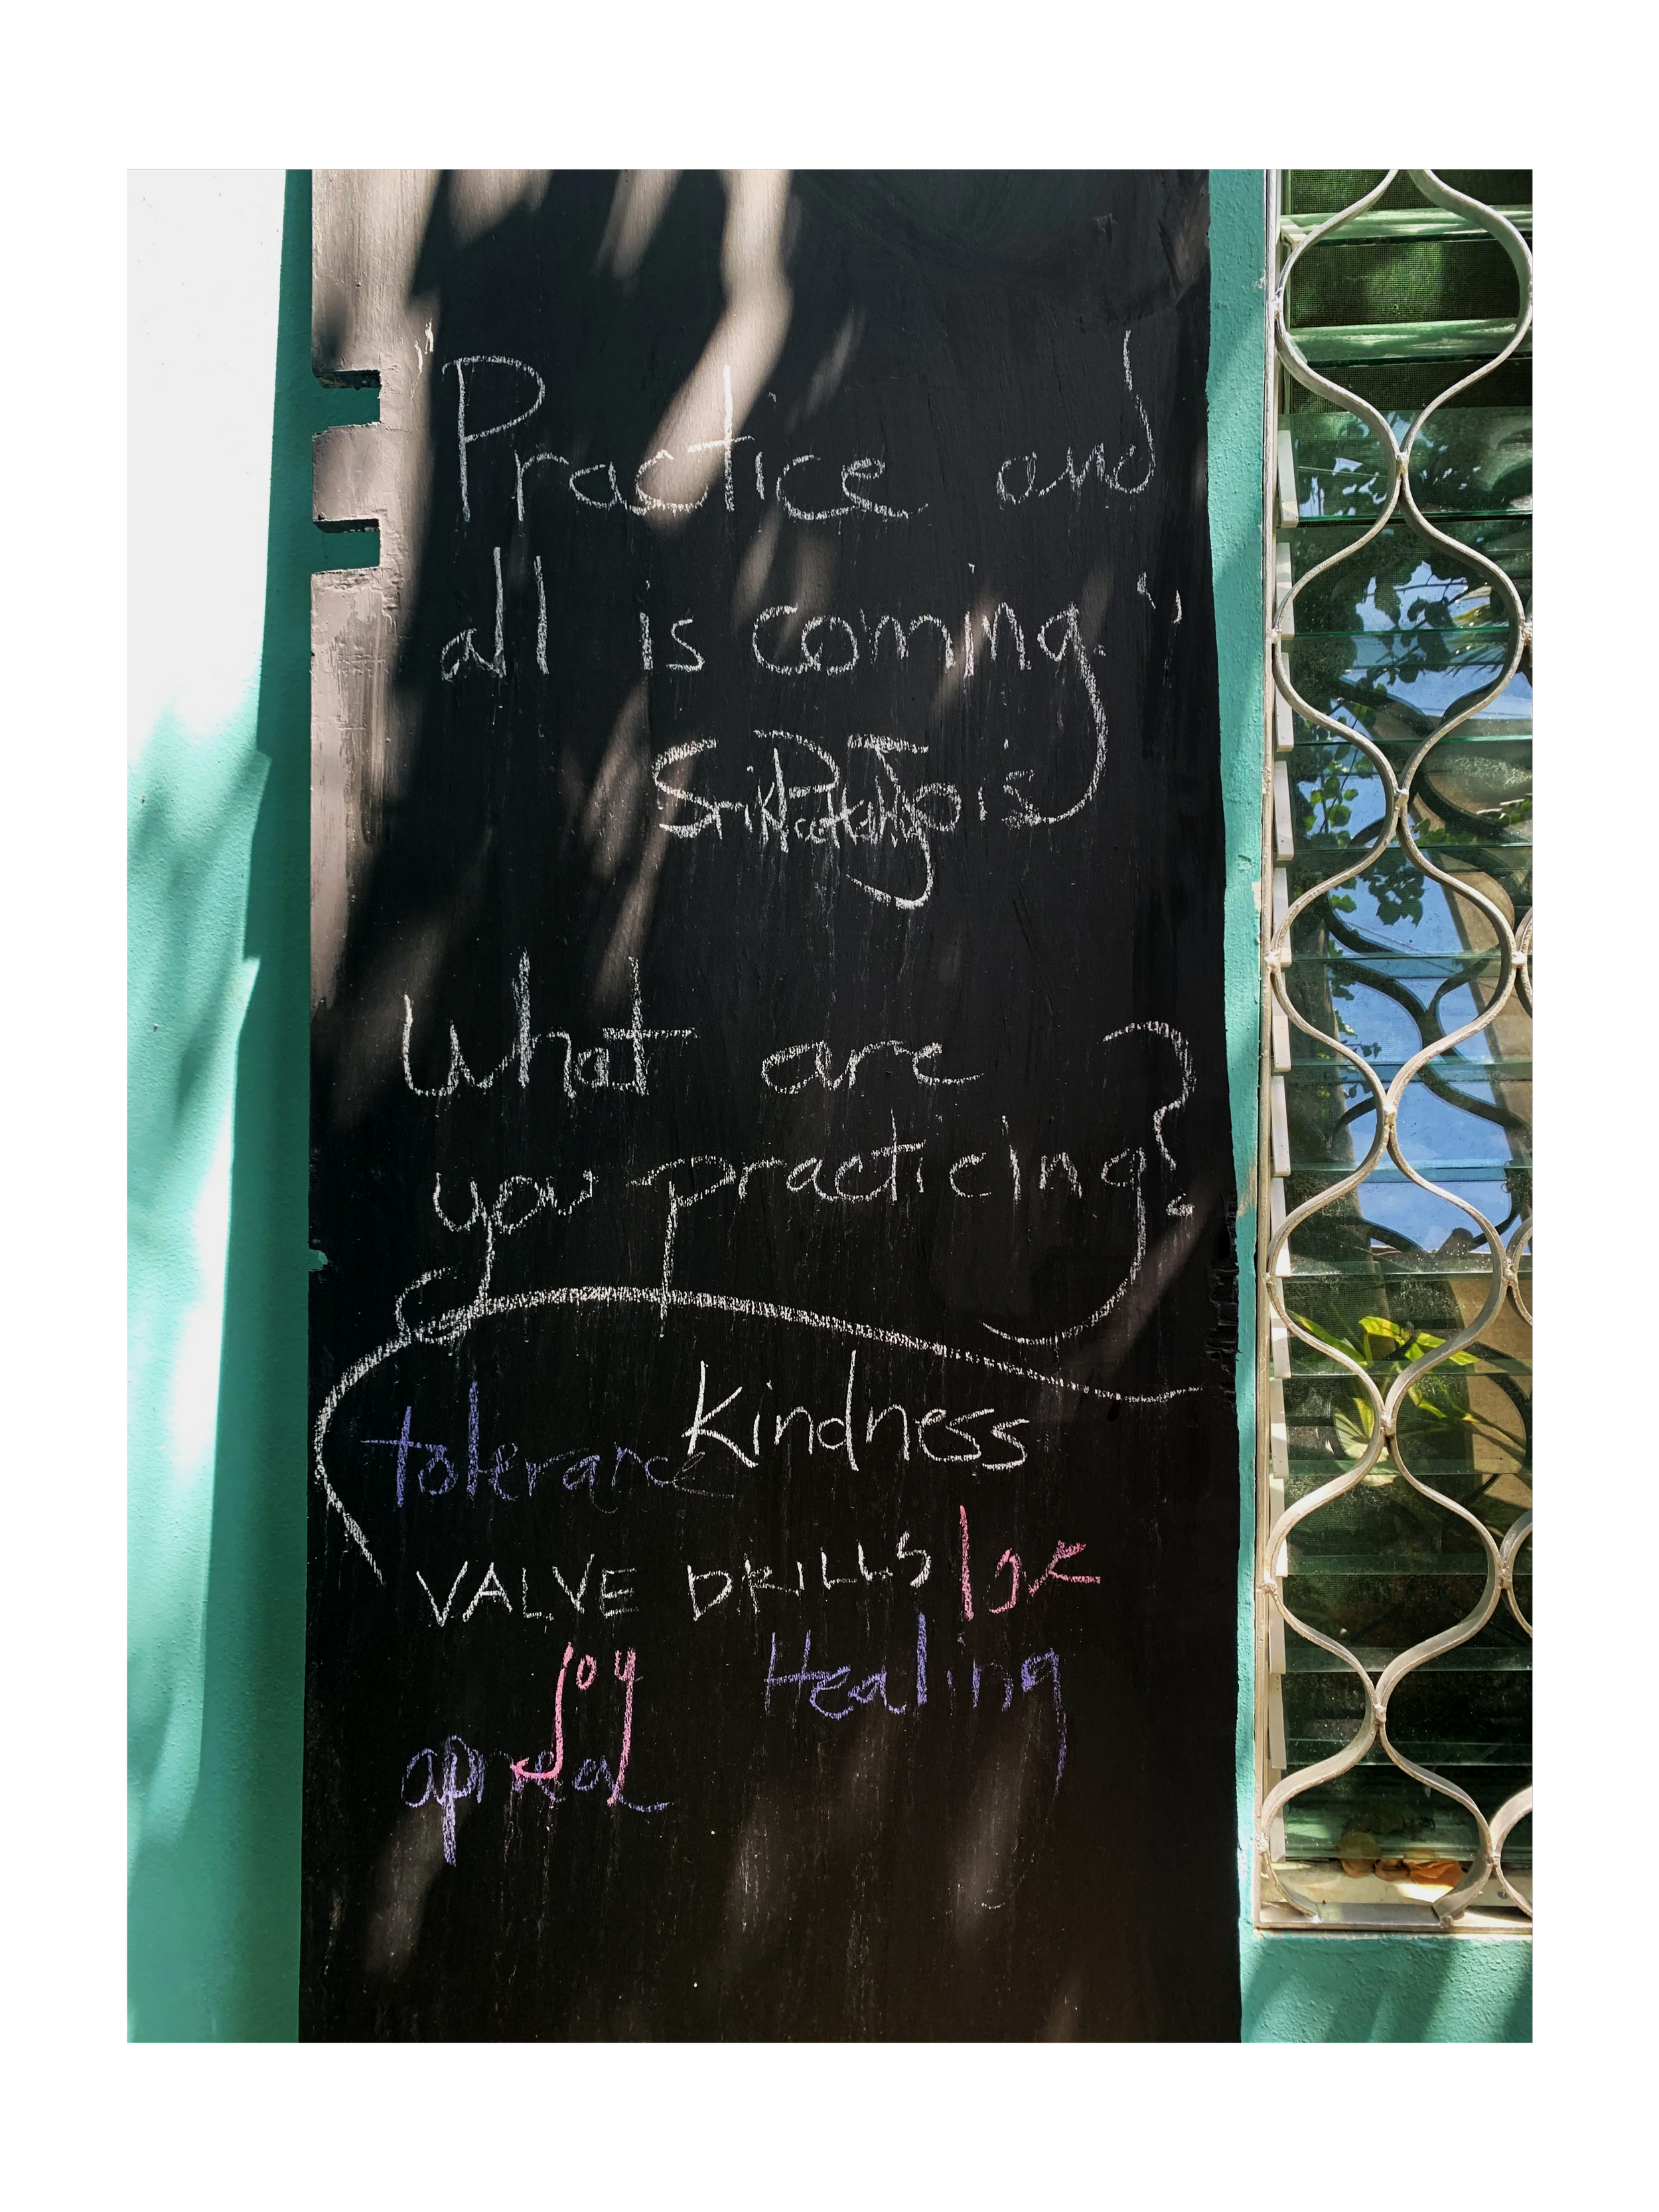 "Practice and
all is coming."
Sri K P Jois
What are
you practicing?
tolerance Kindness
VALVE DRILLS love
joy Healing
apnea